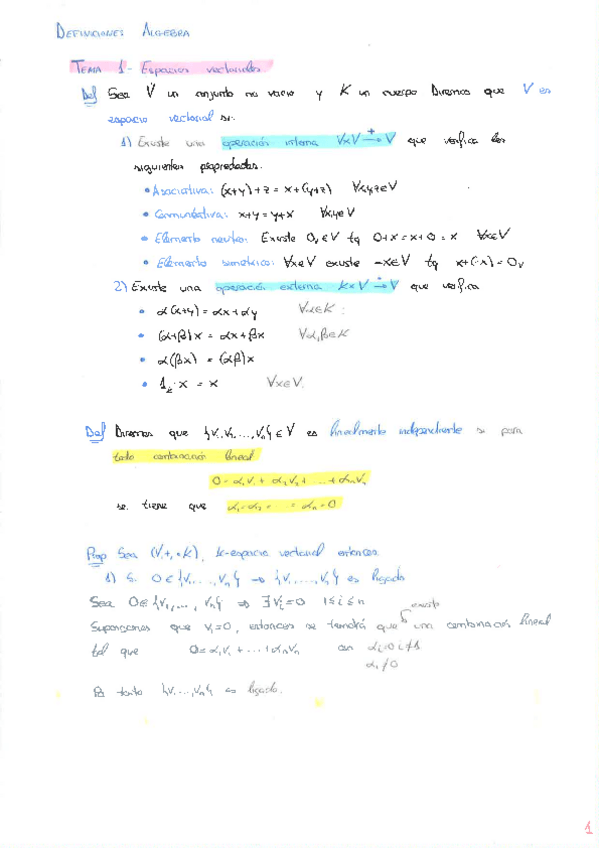 DEFINICIONES ALGEBRA
TEMA 1- Espacios vectoriales
Def Sea V un conjunto no vacio y K un cuerpo Diremos que V es
espacio vectorial si:
1) Existe una operación interna V×V →⁺ V que verifica las
siguientes propiedades.
• Asociativa: (x+y)+z = x+(y+z) ∀x,y,z∈V
• Conmutativa: x+y=y+x ∀x,y∈V
• Elemento neutro: Existe 0ᵥ∈V tq 0+x=x+0=x ∀x∈V
• Elemento simetrico: ∀x∈V existe -x∈V tq x+(-x)=0ᵥ
2) Existe una operación externa K×V →˙ V que verifica
• α(x+y) = αx+αy ∀α∈K:
• (α+β)x = αx+βx ∀α,β∈K
• α(βx) = (αβ)x
• 1ₖ·x = x ∀x∈V.
Def Diremos que {v₁,v₂,...,vₙ}∈V es linealmente independiente si para
toda combinación lineal
0=α₁v₁+α₂v₂+...+αₙvₙ
se tiene que α₁=α₂=...=αₙ=0
Prop Sea (V,+,·K), K-espacio vectorial entonces.
1) Si 0∈{v₁,...,vₙ} → {v₁,...,vₙ} es ligado
Sea 0∈{v₁,...,vₙ} ⇒ ∃vᵢ=0 1≤i≤n
existe
Supongamos que v₁=0, entonces se tendrá que una combinación lineal
tal que 0=α₁v₁+...+αₙvₙ con αᵢ=0 i≠1
α₁≠0
Por tanto {v₁,...,vₙ} es ligado.
1